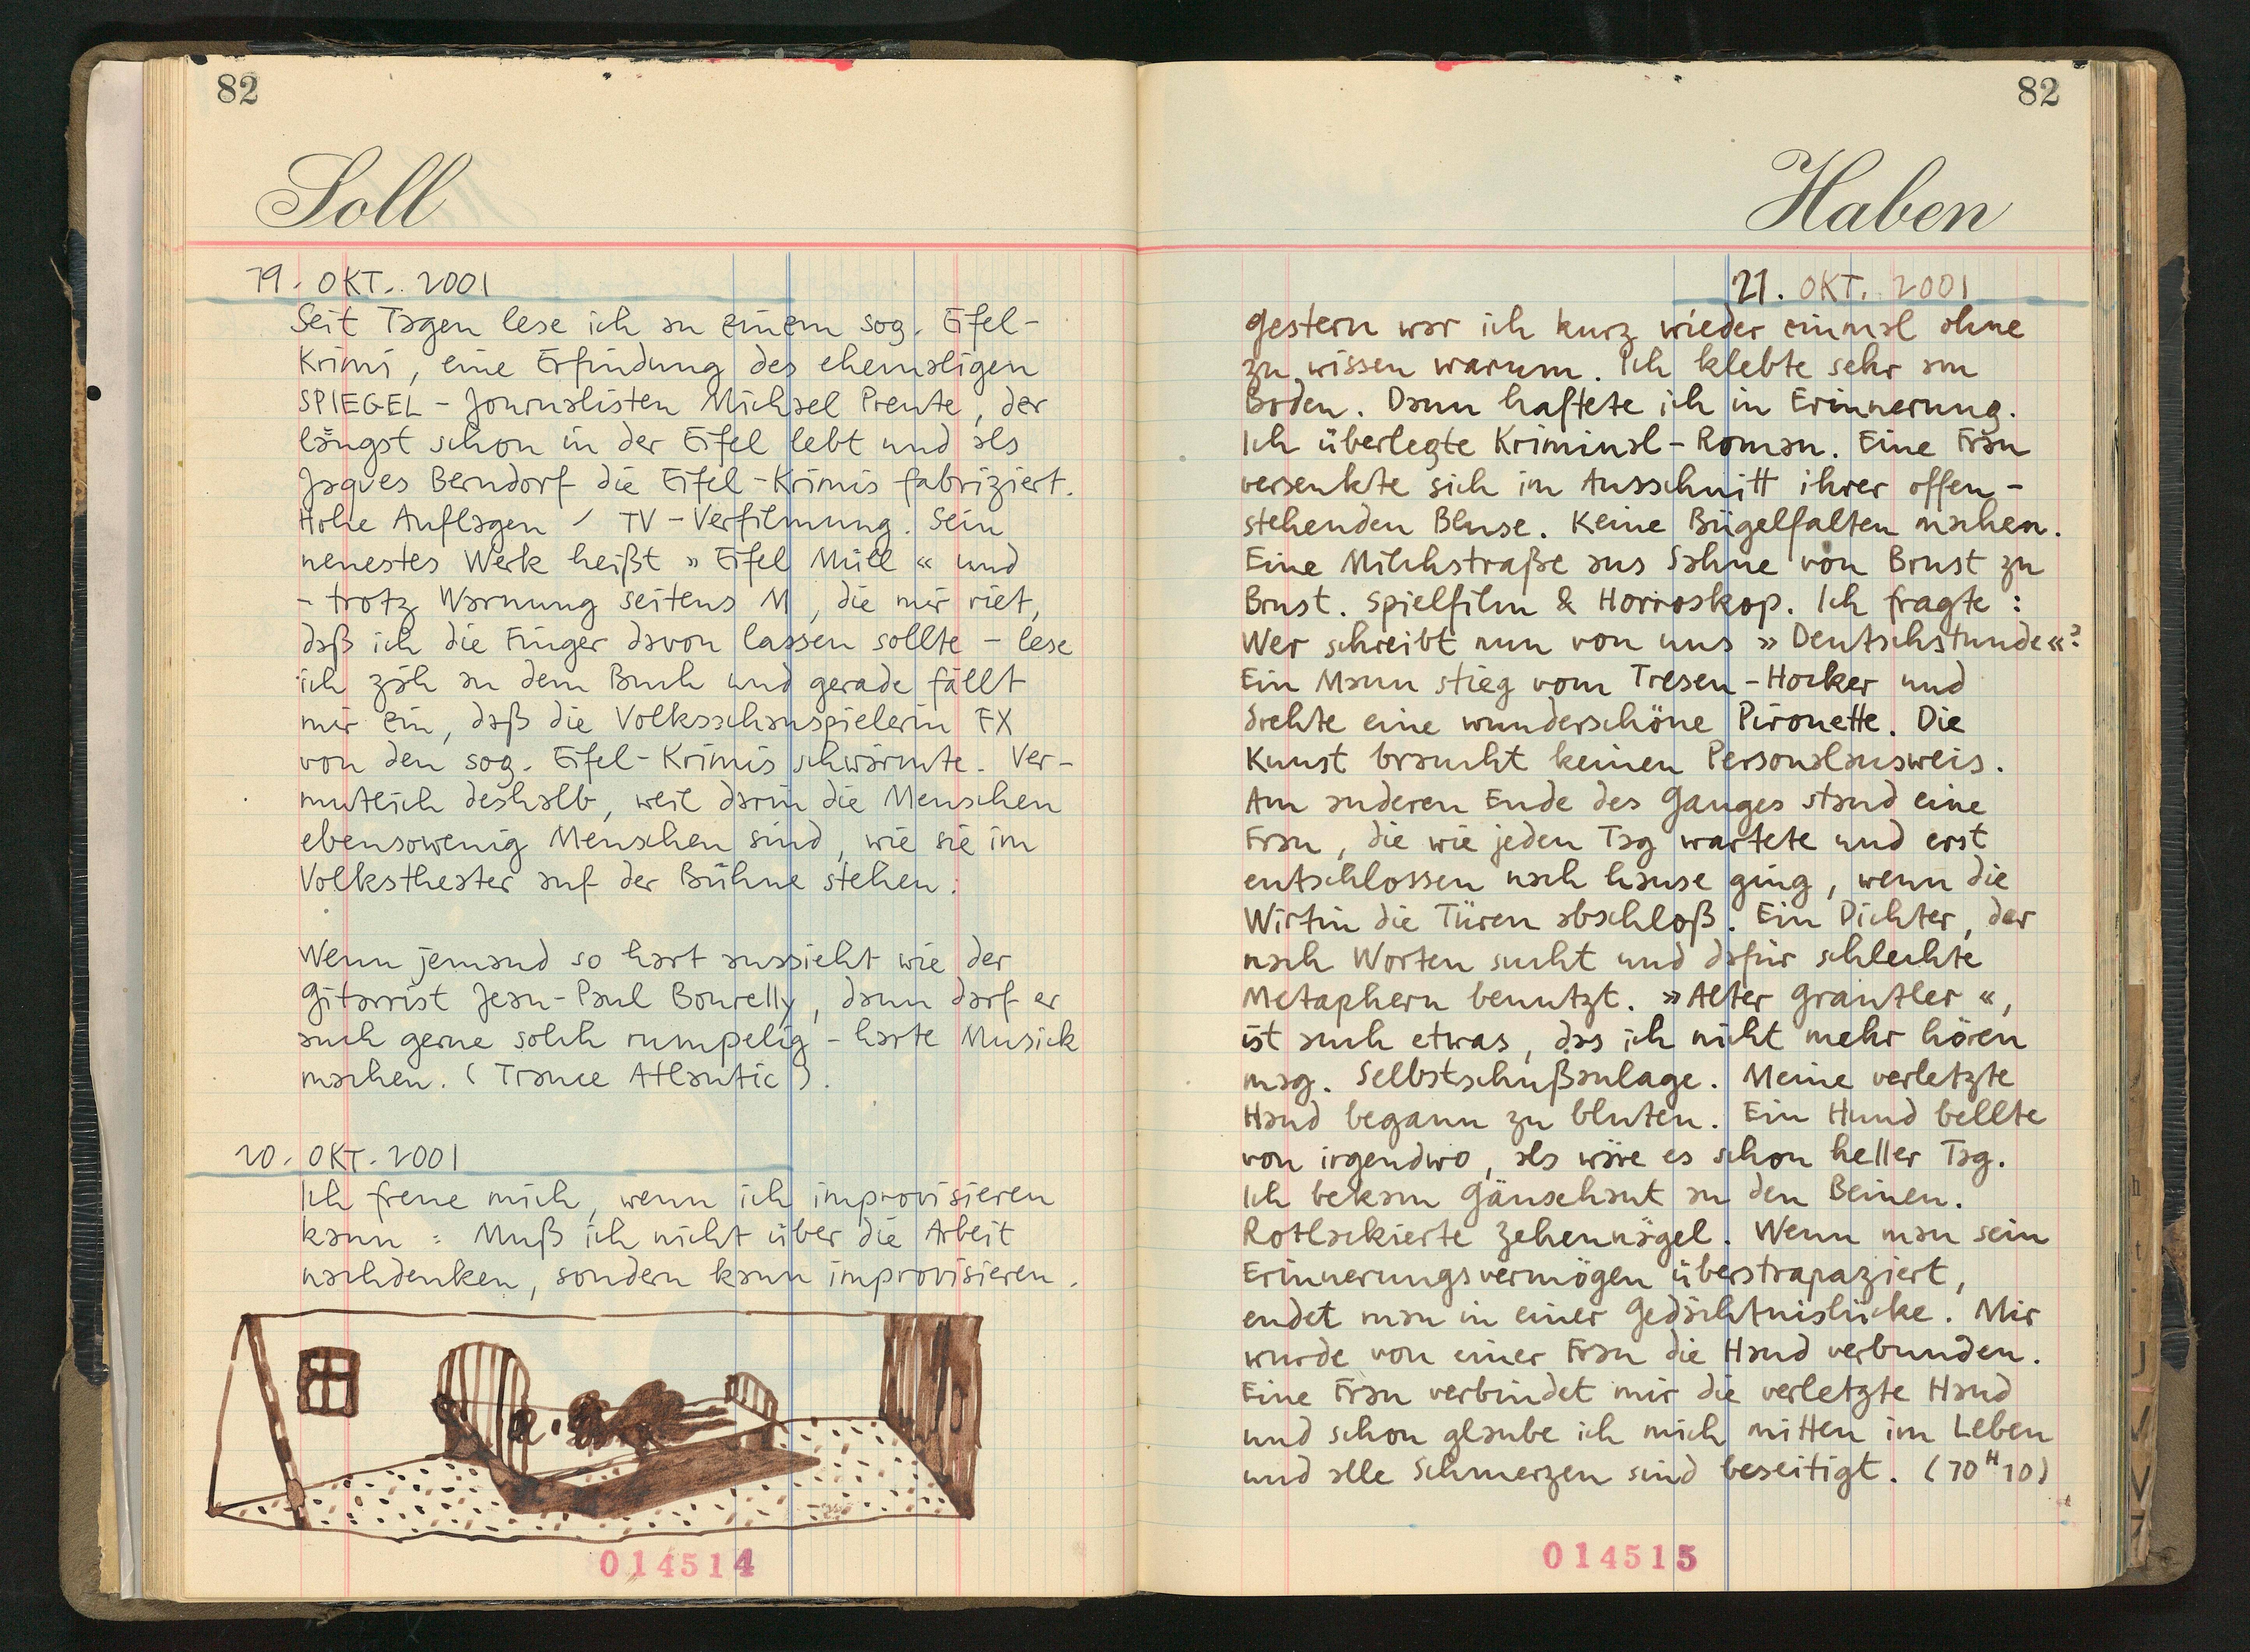 82
Soll
19. OKT. 2001
Seit Tagen lese ich an einem sog. Eifel-
Krimi, eine Erfindung des ehemaligen
SPIEGEL-Journalisten Michael Preute, der
längst schon in der Eifel lebt und als
Jaques Berndorf die Eifel-Krimis fabriziert.
Hohe Auflagen / TV-Verfilmung. Sein
neuestes Werk heißt » Eifel Müll « und
- trotz Warnung seitens M, die mir riet,
daß ich die Finger davon lassen sollte - lese
ich zäh an dem Buch und gerade fällt
mir ein, daß die Volksschauspielerin FX
von den sog. Eifel-Krimis schwärmte. Ver-
mutlich deshalb, weil darin die Menschen
ebensowenig Menschen sind, wie sie im
Volkstheater auf der Bühne stehen.
Wenn jemand so hart aussieht wie der
Gitarrist Jean-Paul Bourelly, dann darf er
auch gerne solch rumpelig-harte Musick
machen. (Trance Atlantic).
20. OKT. 2001
Ich freue mich, wenn ich improvisieren
kann: Muß ich nicht über die Arbeit
nachdenken, sondern kann improvisieren.
014514
82
Haben
21. OKT. 2001
Gestern war ich kurz wieder einmal ohne
zu wissen warum. Ich klebte sehr am
Boden. Dann haftete ich in Erinnerung.
Ich überlegte Kriminal-Roman. Eine Frau
versenkte sich im Ausschnitt ihrer offen-
stehenden Bluse. Keine Bügelfalten machen.
Eine Milchstraße aus Sahne von Brust zu
Brust. Spielfilm & Horroskop. Ich fragte:
Wer schreibt nun von uns »Deutschstunde«?
Ein Mann stieg vom Tresen-Hocker und
drehte eine wunderschöne Pironette. Die
Kunst braucht keinen Personalausweis.
Am anderen Ende des Ganges stand eine
Frau, die wie jeden Tag wartete und erst
entschlossen nach hause ging, wenn die
Wirtin die Türen abschloß. Ein Dichter, der
nach Worten sucht und dafür schlechte
Metaphern benutzt. »Alter Grantler«,
ist auch etwas, das ich nicht mehr hören
mag. Selbstschußanlage. Meine verletzte
Hand begann zu bluten. Ein Hund bellte
von irgendwo, als wäre es schon heller Tag.
Ich bekam Gänsehaut an den Beinen.
Rotlackierte Zehennägel. Wenn man sein
Erinnerungsvermögen überstrapaziert,
endet man in einer Gedächtnislücke. Mir
wurde von einer Frau die Hand verbunden.
Eine Frau verbindet mir die verletzte Hand
und schon glaube ich mich mitten im Leben
und alle Schmerzen sind beseitigt. (10 H 10)
014515